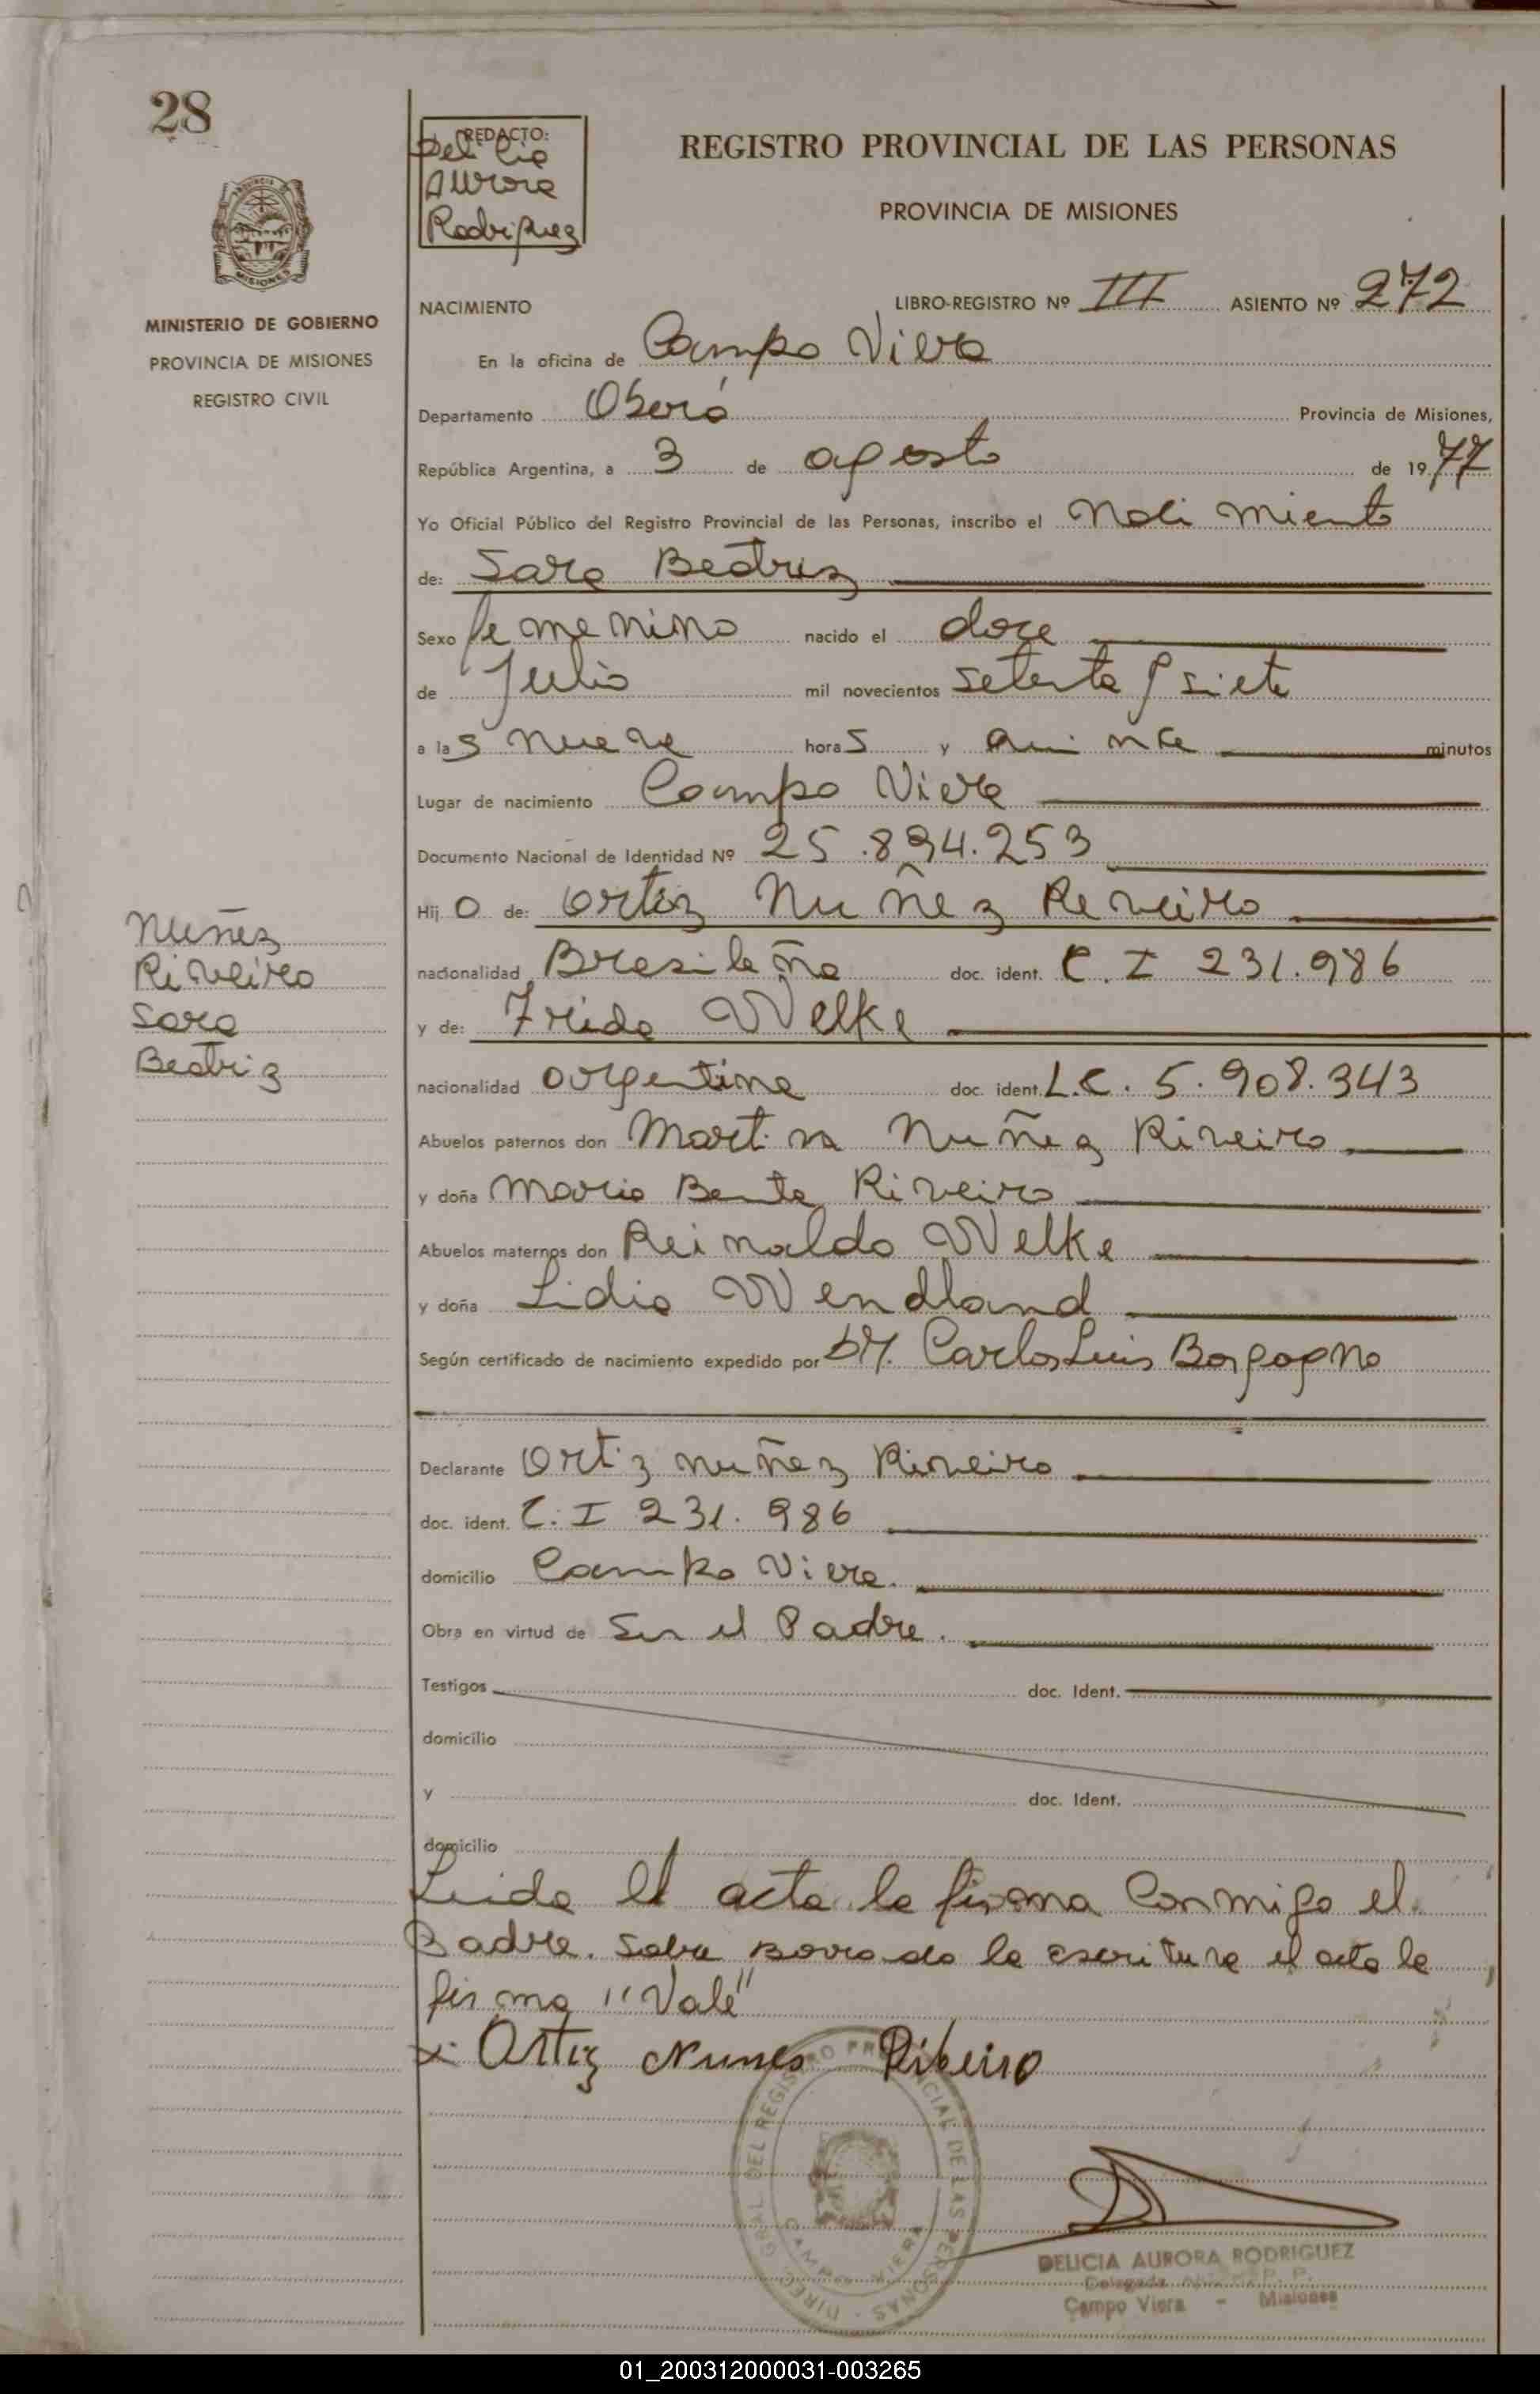 28
REDACTO:
Delicia
Aurora
Rodriguez
REGISTRO PROVINCIAL DE LAS PERSONAS
PROVINCIA DE MISIONES
MISIONES
MINISTERIO DE GOBIERNO
PROVINCIA DE MISIONES
REGISTRO CIVIL
NACIMIENTO LIBRO-REGISTRO Nº III ASIENTO Nº 272
En la oficina de Campo Viera
Departamento Oberá Provincia de Misiones,
República Argentina, a 3 de agosto de 1977
Yo Oficial Público del Registro Provincial de las Personas, inscribo el Nacimiento
de: Sara Beatriz
Sexo femenino nacido el doce
de Julio mil novecientos setenta y siete
a las nueve horas y quince minutos
Lugar de nacimiento Campo Viera
Documento Nacional de Identidad Nº 25.894.253
Hijo de: Ortiz Nuñez Reveiro
nacionalidad Brasileña doc. ident. C.I 231.986
y de: Frida Welke
nacionalidad argentina doc. ident. L.C. 5.908.343
Abuelos paternos don Martin Nuñez Riveiro
y doña Maria Benta Riveiro
Abuelos maternos don Reinaldo Welke
y doña Lidia Wendland
Según certificado de nacimiento expedido por Dr. Carlos Luis Borgogno
Declarante Ortiz Nuñez Riveiro
doc. ident. C.I 231.986
domicilio Campo Viera.
Obra en virtud de Ser el Padre.
Testigos doc. Ident.
domicilio
y doc. Ident.
domicilio
Leida el acta la firma Conmigo el
Padre. Sobre Borrado la escritura el acta la
firma "Vale"
x. Ortiz Nunes Ribeiro
Nuñez
Riveiro
Sara
Beatriz
DIREC. GRAL. DEL REGISTRO PROVINCIAL DE LAS PERSONAS
CAMPO VIERA
DELICIA AURORA RODRIGUEZ
Delegada
Campo Viera - Misiones
01_200312000031-003265